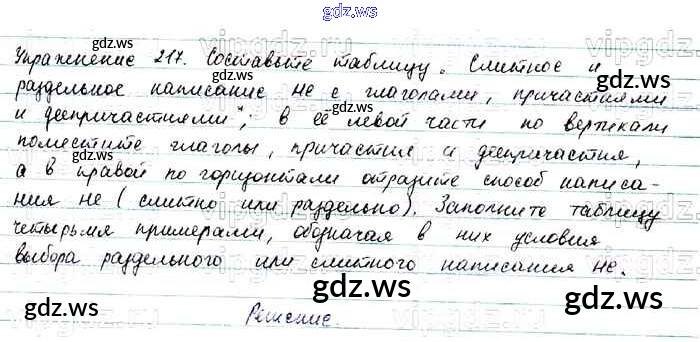 gdz.ws
Упражнение 217. Составьте таблицу „Слитное и
раздельное написание не с глаголами, причастиями
и деепричастиями"; в её левой части по вертикали
поместите глаголы, причастия и деепричастия,
а в правой по горизонтали отразите способ написа-
ния не (слитно или раздельно). Заполните таблицу
четырьмя примерами, обозначая в них условия
выбора раздельного или слитного написания не.
gdz.ws gdz.ws
Решение.